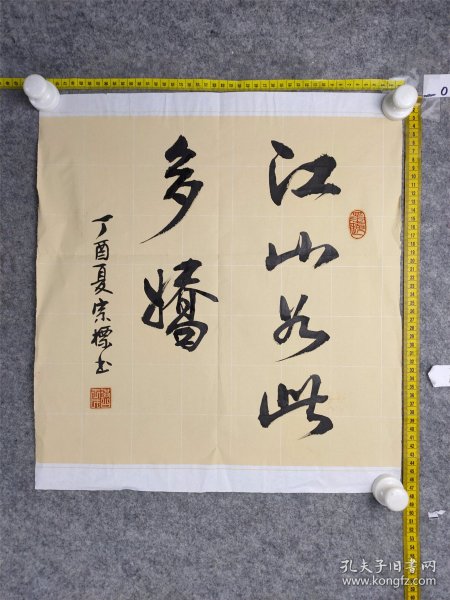 江山如此
多嬌
丁酉夏宗標书
孔夫子旧书网
www.kongfz.com
0